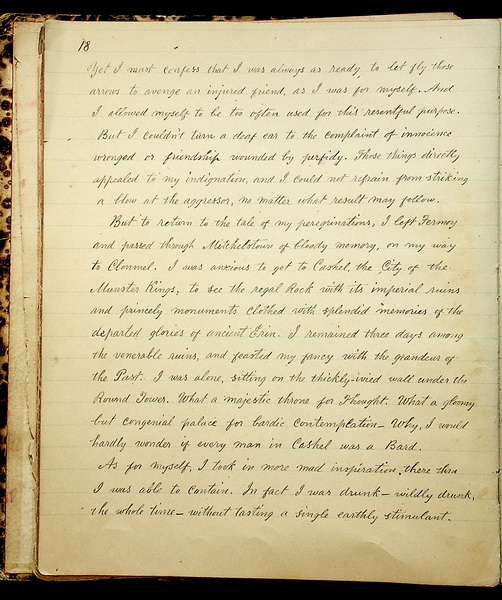 18
Yet I must confess that I was always as ready to let fly those
arrows to avenge an injured friend, as I was for myself. And
I allowed myself to be too often used for this resentful purpose.
But I couldn't turn a deaf ear to the complaint of innocence
wronged or friendship wounded by perfidy. Those things directly
appealed to my indignation, and I could not refrain from striking
a blow at the aggressor, no matter what result may follow.
But to return to the tale of my peregrinations, I left Fermoy
and passed through Mitchelstown of bloody memory, on my way
to Clonmel. I was anxious to get to Cashel, the City of the
Munster Kings, to see the regal Rock with its imperial ruins
and princely monuments clothed with splendid memories of the
departed glories of ancient Erin. I remained three days among
the venerable ruins, and feasted my fancy with the grandeur of
the Past. I was alone, sitting on the thickly-ivied wall under the
Round Tower. What a majestic throne for Thought. What a gloomy
but congenial palace for Bardic Contemplation – Why, I would
hardly wonder if every man in Cashel was a Bard.
As for myself, I took in more mad inspiration there than
I was able to contain. In fact I was drunk – wildly drunk,
the whole time – without tasting a single earthly stimulant.